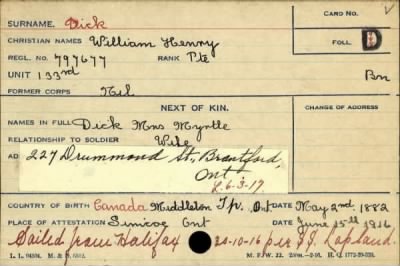 CARD NO.
SURNAME. Dick
CHRISTIAN NAMES William Henry
FOLL. D
REGL. NO. 797677 RANK Pte
UNIT 133rd Bn
FORMER CORPS Nil
NEXT OF KIN.
CHANGE OF ADDRESS
NAMES IN FULL Dick Mrs Myrtle
RELATIONSHIP TO SOLDIER Wife
AD 227 Drummond St., Brantford,
Ont.
L. 6-3-17.
COUNTRY OF BIRTH Canada Middleton Tp. Ont DATE May 2nd 1882
PLACE OF ATTESTATION Simcoe Ont DATE June 15th 1916
Sailed from Halifax 30-10-16 per S.S. Lapland.
M. F. W. 22.